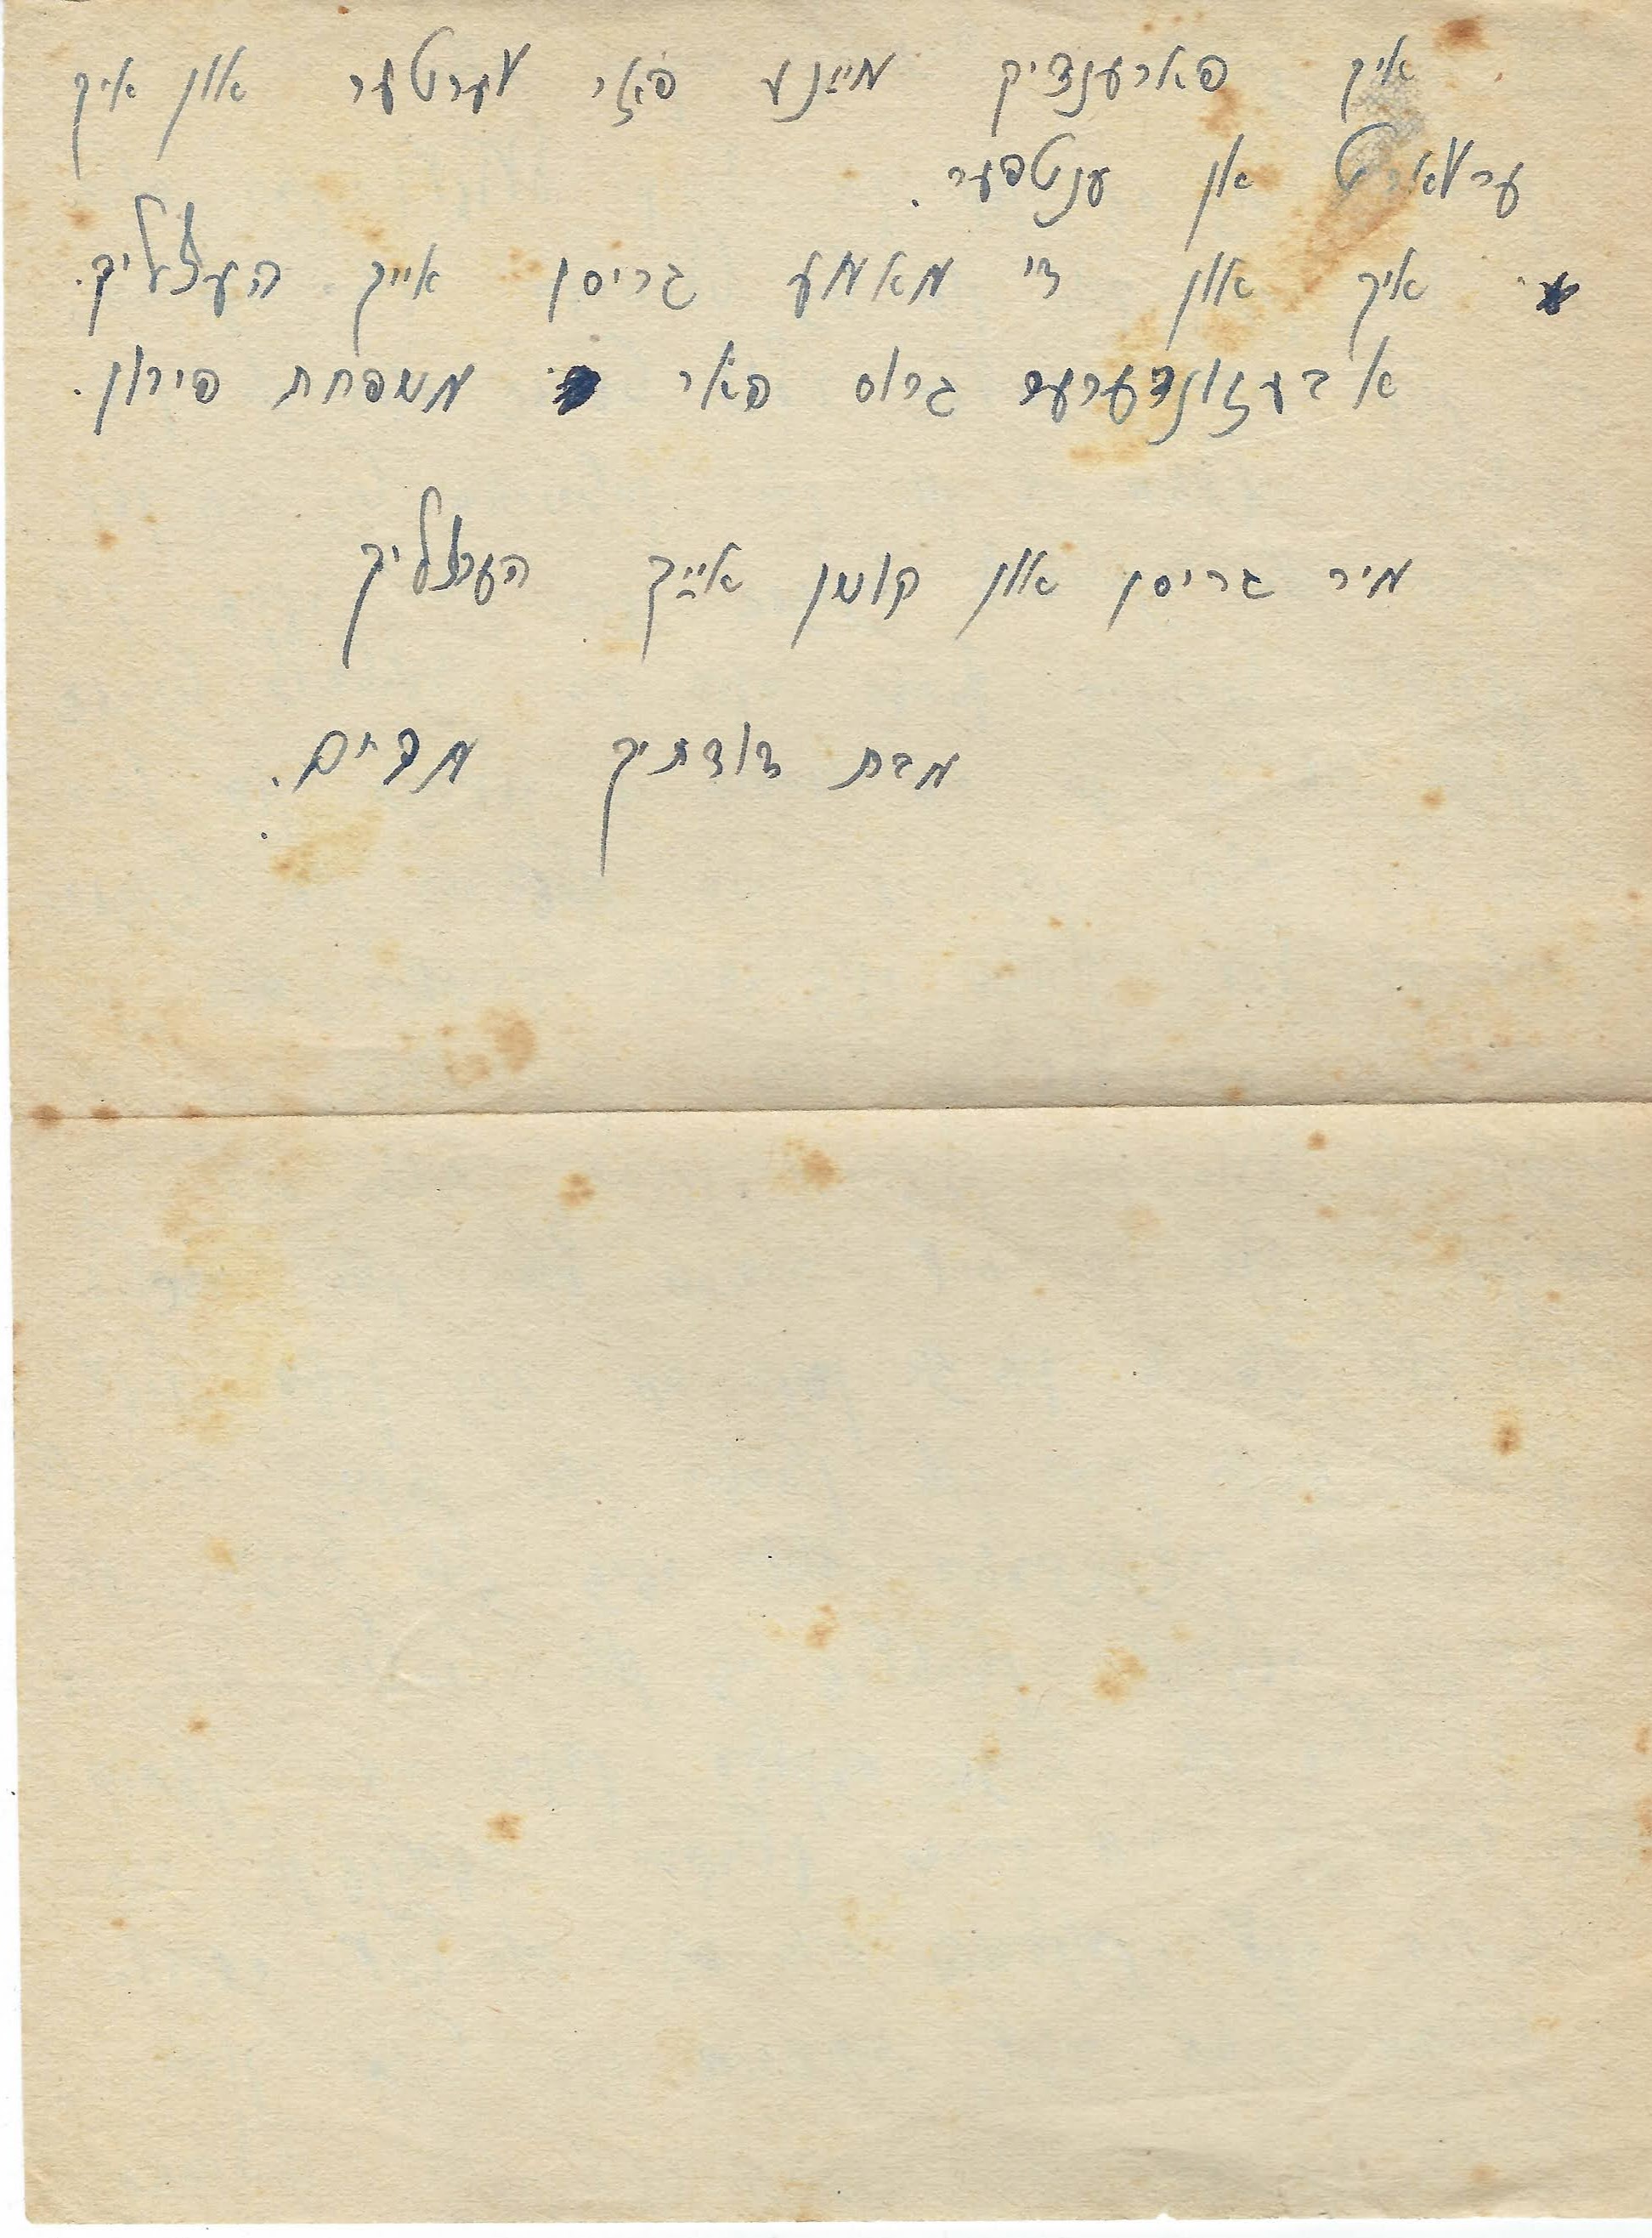 איך פארענדיק מיינע פאר ווערטער און איך
ערווארט אן ענטפער.
איך און די מאמע גריסן אייך הערצליך.
א בעזונדערער גרוס פאר משפחת פירון.
מיר גריסן און קושן אייך הערצליך
מבת דודתיך מרים.